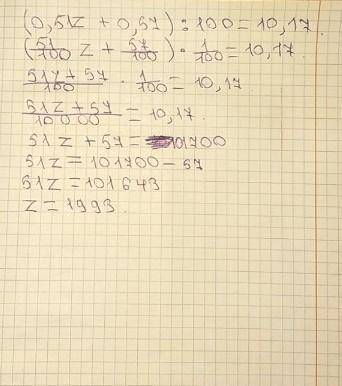 (0,51z + 0,57) : 100 = 10,17.
(51/100 z + 57/100) · 1/100 = 10,17.
51z + 57/100 · 1/100 = 10,17.
51z + 57/10000 = 10,17.
51z + 57 = 101700
51z = 101700 - 57
51z = 101643
z = 1993.